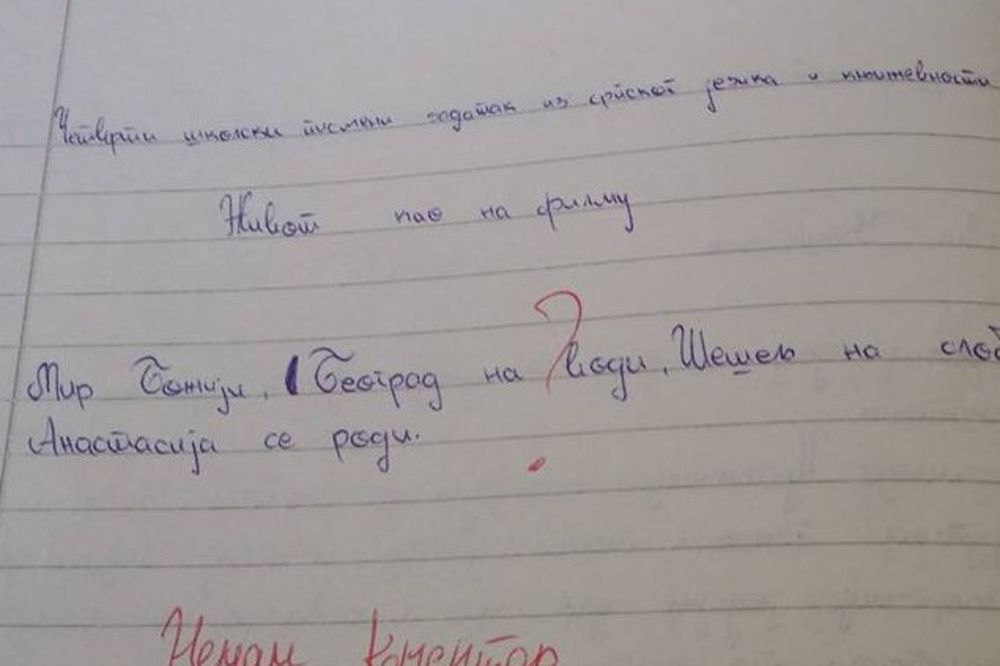 Четврти школски писмени задатак из српског језика и књижевности
Живот као на филму
Мир Божији, Београд на води, Шешељ на слоб
Анастасија се роди.
?
Немам коментар